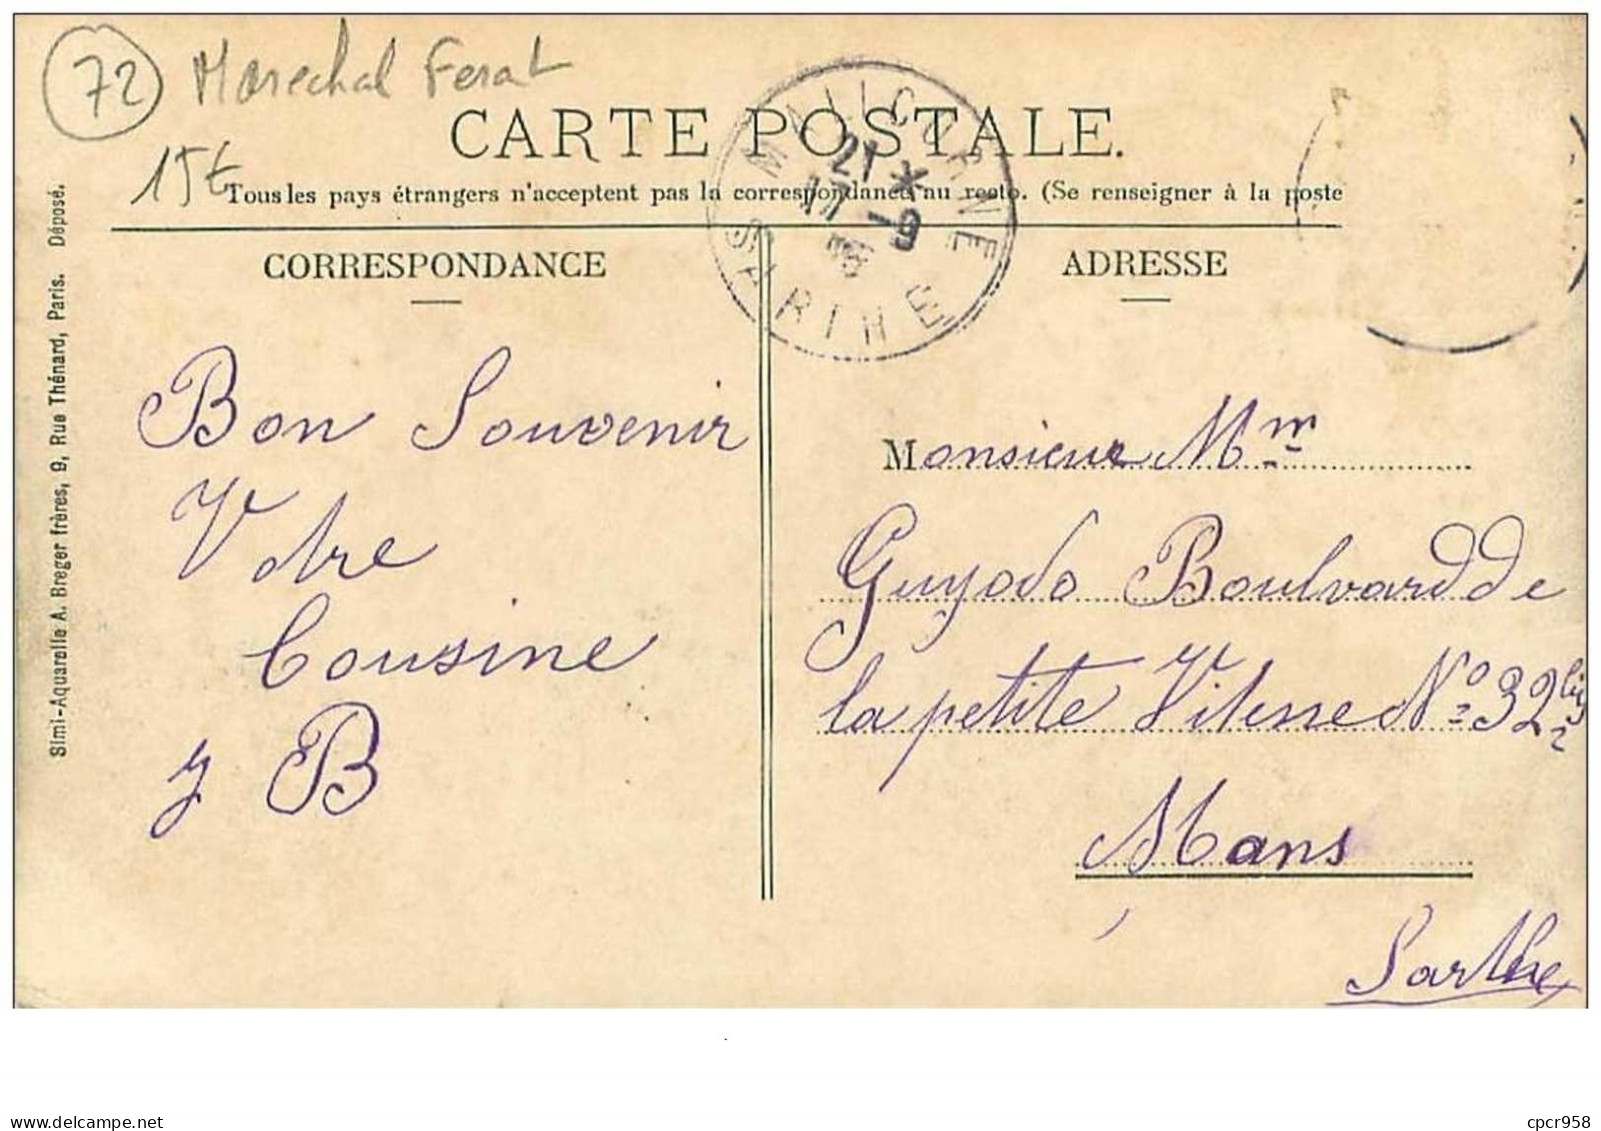 72 Marechal Ferat
15€
CARTE POSTALE.
Tous les pays étrangers n'acceptent pas la correspondance au recto. (Se renseigner à la poste
MALICORNE
21 *
11 -9
SARTHE
CORRESPONDANCE
ADRESSE
Simi-Aquarelle A. Breger frères, 9, Rue Thénard, Paris. Déposé.
Bon Souvenir
Votre
Cousine
B
Monsieur Mm
Guyodo Boulvard de
la petite Vitesse No 32 bis
Mans
Sarthe
delcampe.net
cpcr958